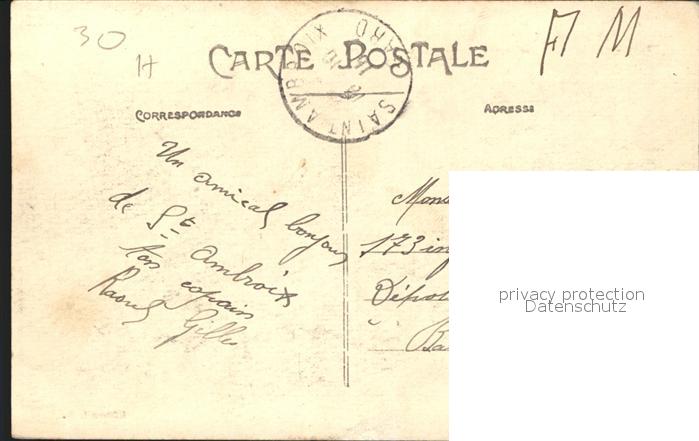 30
H
FM
CARTE POSTALE
SAINT AMBROIX
GARD
CORRESPONDANCE
ADRESSE
Un amical bonjour
de St Ambroix
ton copain
Raoul Gilles
Mons
173 inf
Dépot
Ba
privacy protection
Datenschutz